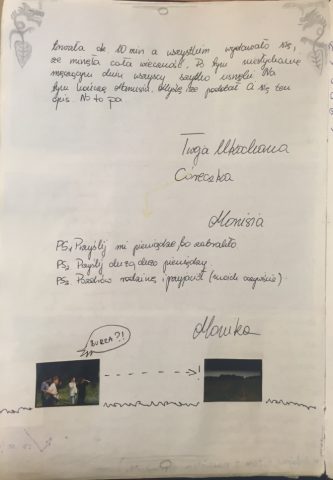 trwała ok 10 min a wszystkim wydawało się,
że minęła cała wieczność. Po tym niesłychanie
męczącym dniu wszyscy szybko usnęli. Na
tym kończę Mamusiu. Myślę że podobał Ci się ten
opis. No to pa
Twoja Ukochana
Córeczka
Monisia
PS1 Przyślij mi pieniądze bo zabrakło
PS2 Przyślij dużo, dużo pieniędzy
PS3 Pozdrów rodzinę i przyjaciół
Monika
BURZA?!
!